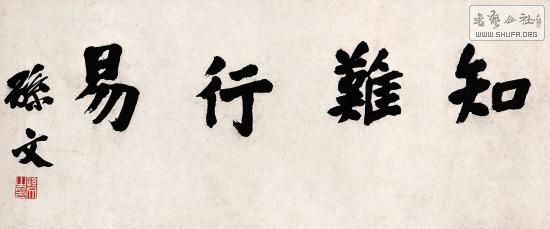 知難行易
孫文
書藝公社
WWW.SHUFA.ORG